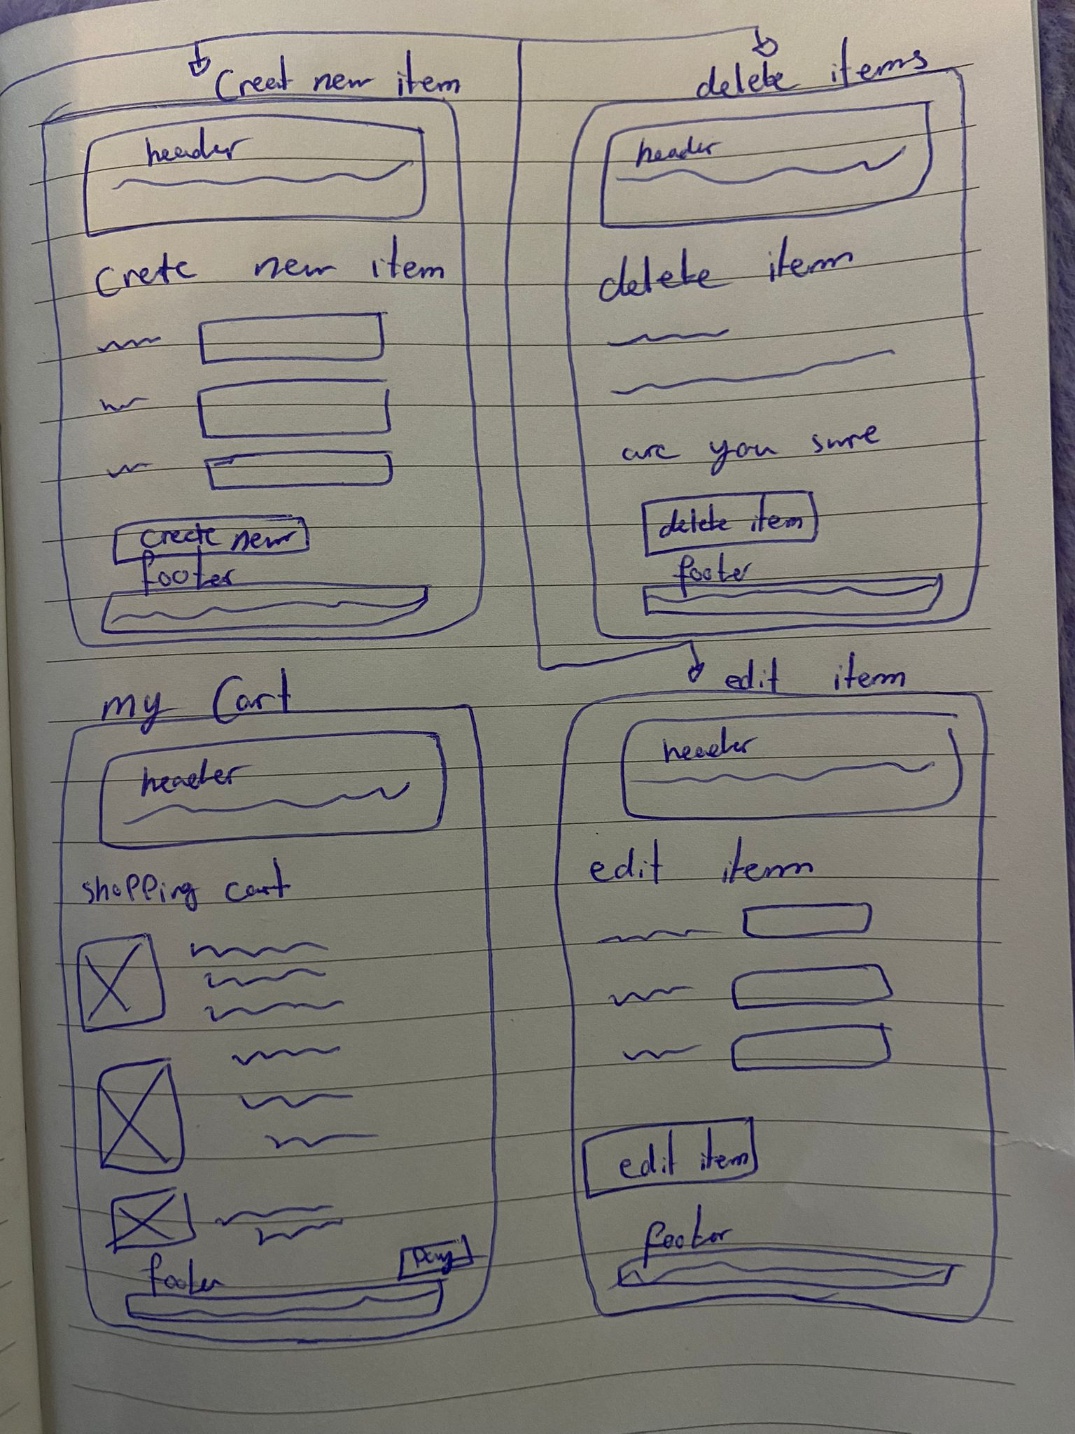 Creat new item
header
Crete new item
create new
footer
delete items
header
delete item
are you sure
delete item
footer
my Cart
header
shopping cart
Pay
footer
edit item
header
edit item
edit item
footer